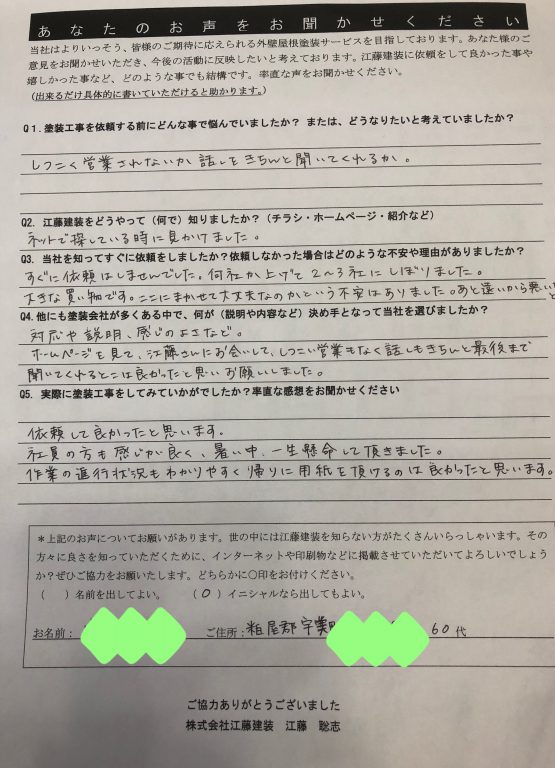 あなたのお声をお聞かせください
当社はよりいっそう、皆様のご期待に応えられる外壁屋根塗装サービスを目指しております。あなた様のご
意見をお聞かせいただき、今後の活動に反映したいと考えております。江藤建装に依頼をして良かった事や
嬉しかった事など、どのような事でも結構です。率直な声をお聞かせください。
(出来るだけ具体的に書いていただけると助かります。)
Q1.塗装工事を依頼する前にどんな事で悩んでいましたか? または、どうなりたいと考えていましたか?
しつこく営業されないか 話しをきちんと聞いてくれるか。
Q2. 江藤建装をどうやって(何で)知りましたか?(チラシ・ホームページ・紹介など)
ネットで探している時に見かけました。
Q3. 当社を知ってすぐに依頼をしましたか?依頼しなかった場合はどのような不安や理由がありましたか?
すぐに依頼はしませんでした。何社か上げて2〜3社にしぼりました。
大きな買い物です。ここにまかせて大丈夫なのかという不安はありました。あと遠いから悪いと
Q4.他にも塗装会社が多くある中で、何が(説明や内容など)決め手となって当社を選びましたか?
対応や説明、感じのよさなど。
ホームページを見て、江藤さんにお会いして、しつこい営業もなく話しもきちんと最後まで
聞いてくれるとこは良かったと思いお願いしました。
Q5. 実際に塗装工事をしてみていかがでしたか?率直な感想をお聞かせください
依頼して良かったと思います。
社員の方も感じが良く、暑い中、一生懸命して頂きました。
作業の進行状況もわかりやすく帰りに用紙を頂けるのは良かったと思います。
*上記のお声についてお願いがあります。世の中には江藤建装を知らない方がたくさんいらっしゃいます。その
方々に良さを知っていただくために、インターネットや印刷物などに掲載させていただいてよろしいでしょう
か?ぜひご協力をお願いいたします。どちらかに○印をお付けください。
( )名前を出してよい。 (○)イニシャルなら出してもよい。
お名前: ご住所:粕屋郡宇美町 60代
ご協力ありがとうございました
株式会社江藤建装 江藤 聡志